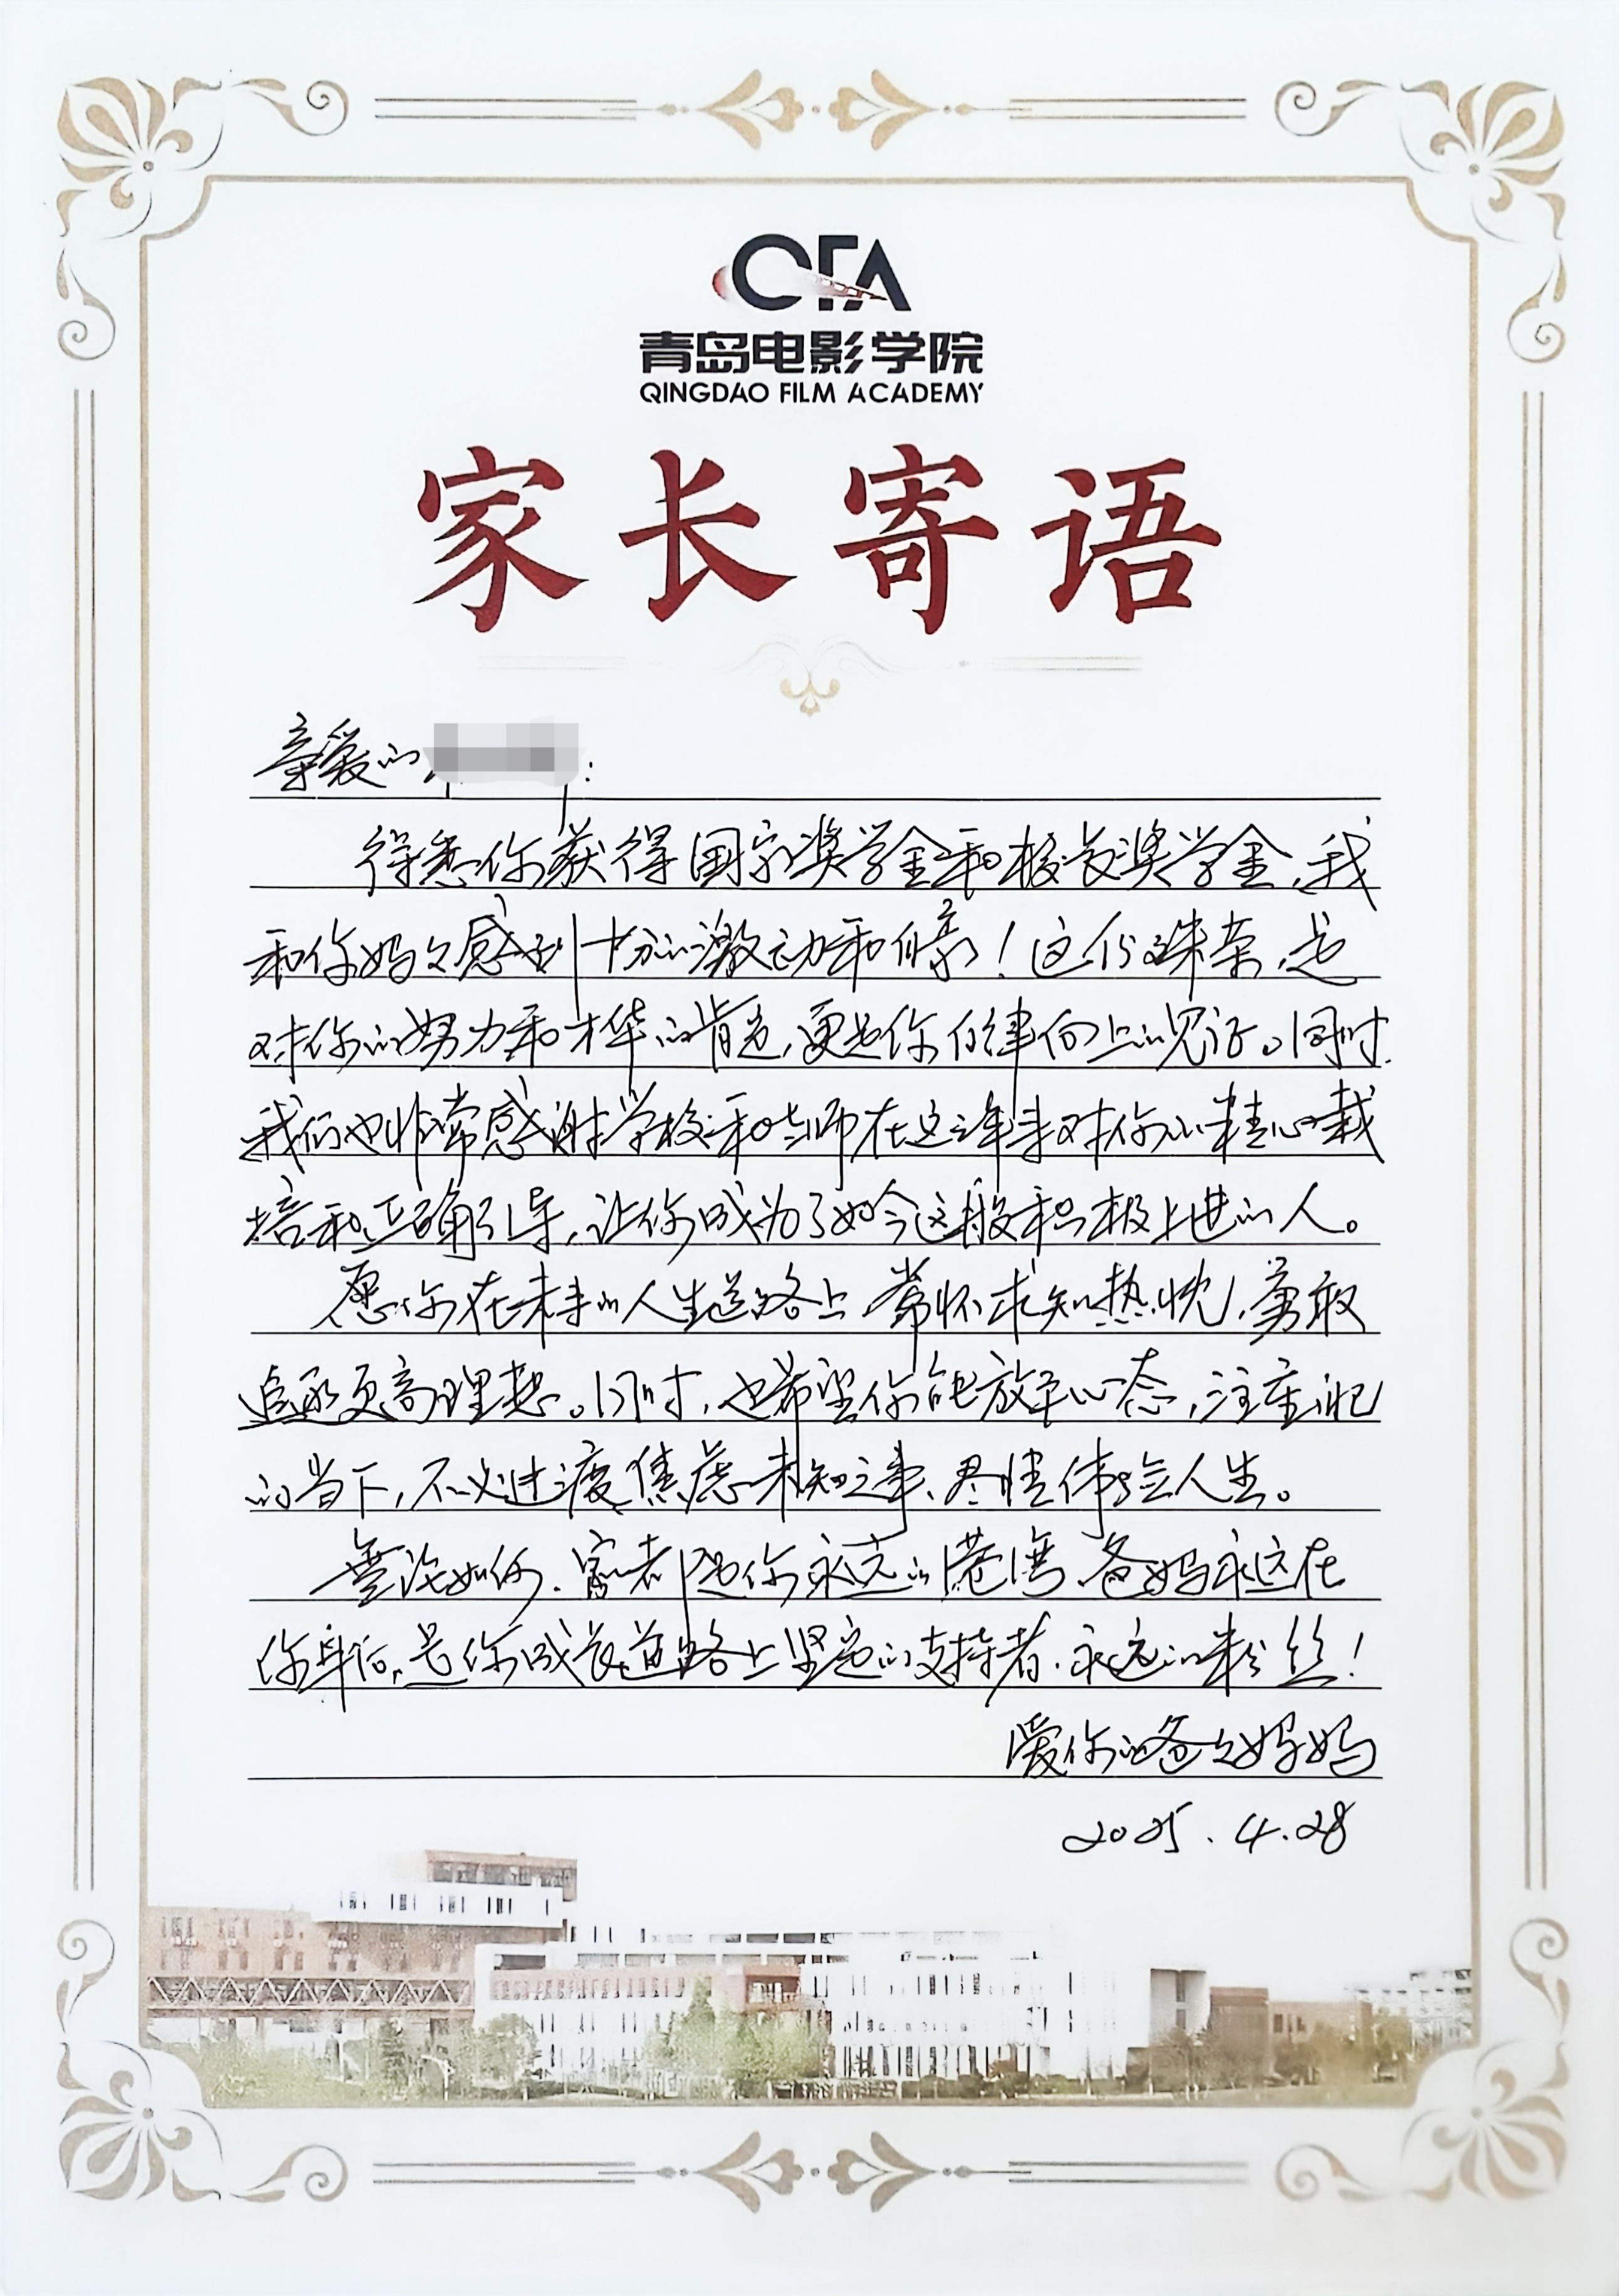 QFA
青岛电影学院
QINGDAO FILM ACADEMY
家长寄语
亲爱的 :
得悉你获得国家奖学金和校长奖学金,我
和你妈々感到十分的激动和自豪!这份殊荣,是
对你的努力和才华的肯定,更是你自律向上的见证。同时
我们也非常感谢学校和老师在这三年来对你的精心栽
培和正确引导,让你成为了如今这般积极上进的人。
愿你在未来的人生道路上常怀求知热忱,勇敢
追求更高理想。同时,也希望你能放平心态,注重
的当下,不必过度焦虑未知之事、尽情体验人生。
无论如何、家都是你永远的港湾、爸妈永远在
你身后,是你成长道路上坚定的支持者、永远的粉丝!
爱你的爸々妈妈
2025.4.28